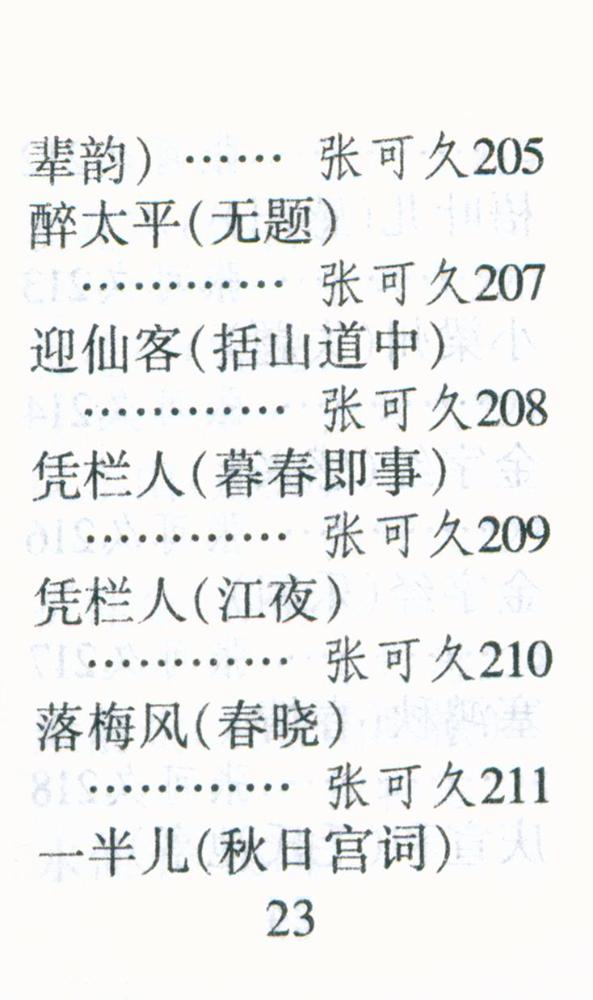 辈韵) …… 张可久205
醉太平(无题)
………… 张可久207
迎仙客(括山道中)
………… 张可久208
凭栏人(暮春即事)
………… 张可久209
凭栏人(江夜)
………… 张可久210
落梅风(春晓)
………… 张可久211
一半儿(秋日宫词)
23